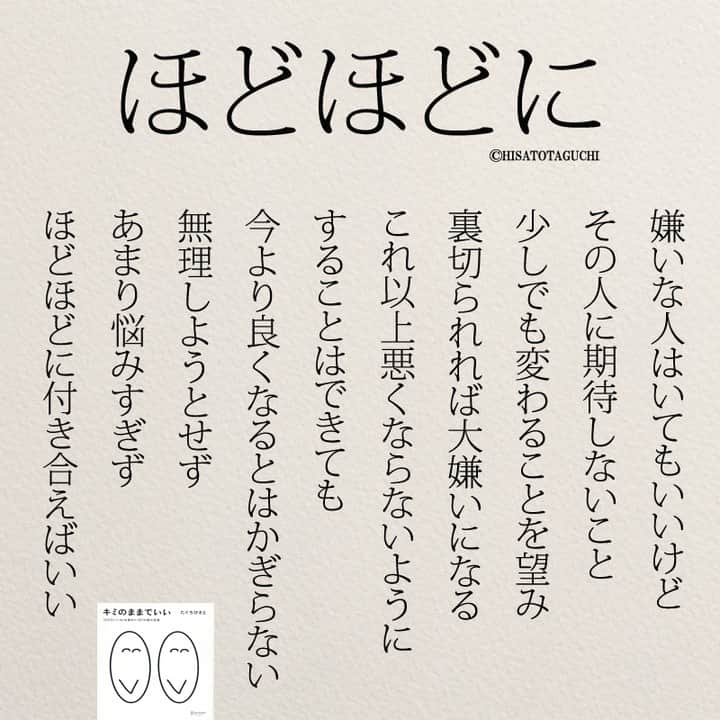 ほどほどに
©HISATOTAGUCHI
嫌いな人はいてもいいけど
その人に期待しないこと
少しでも変わることを望み
裏切られれば大嫌いになる
これ以上悪くならないように
することはできても
今より良くなるとはかぎらない
無理しようとせず
あまり悩みすぎず
ほどほどに付き合えばいい
キミのままでいい
たぐちひさと